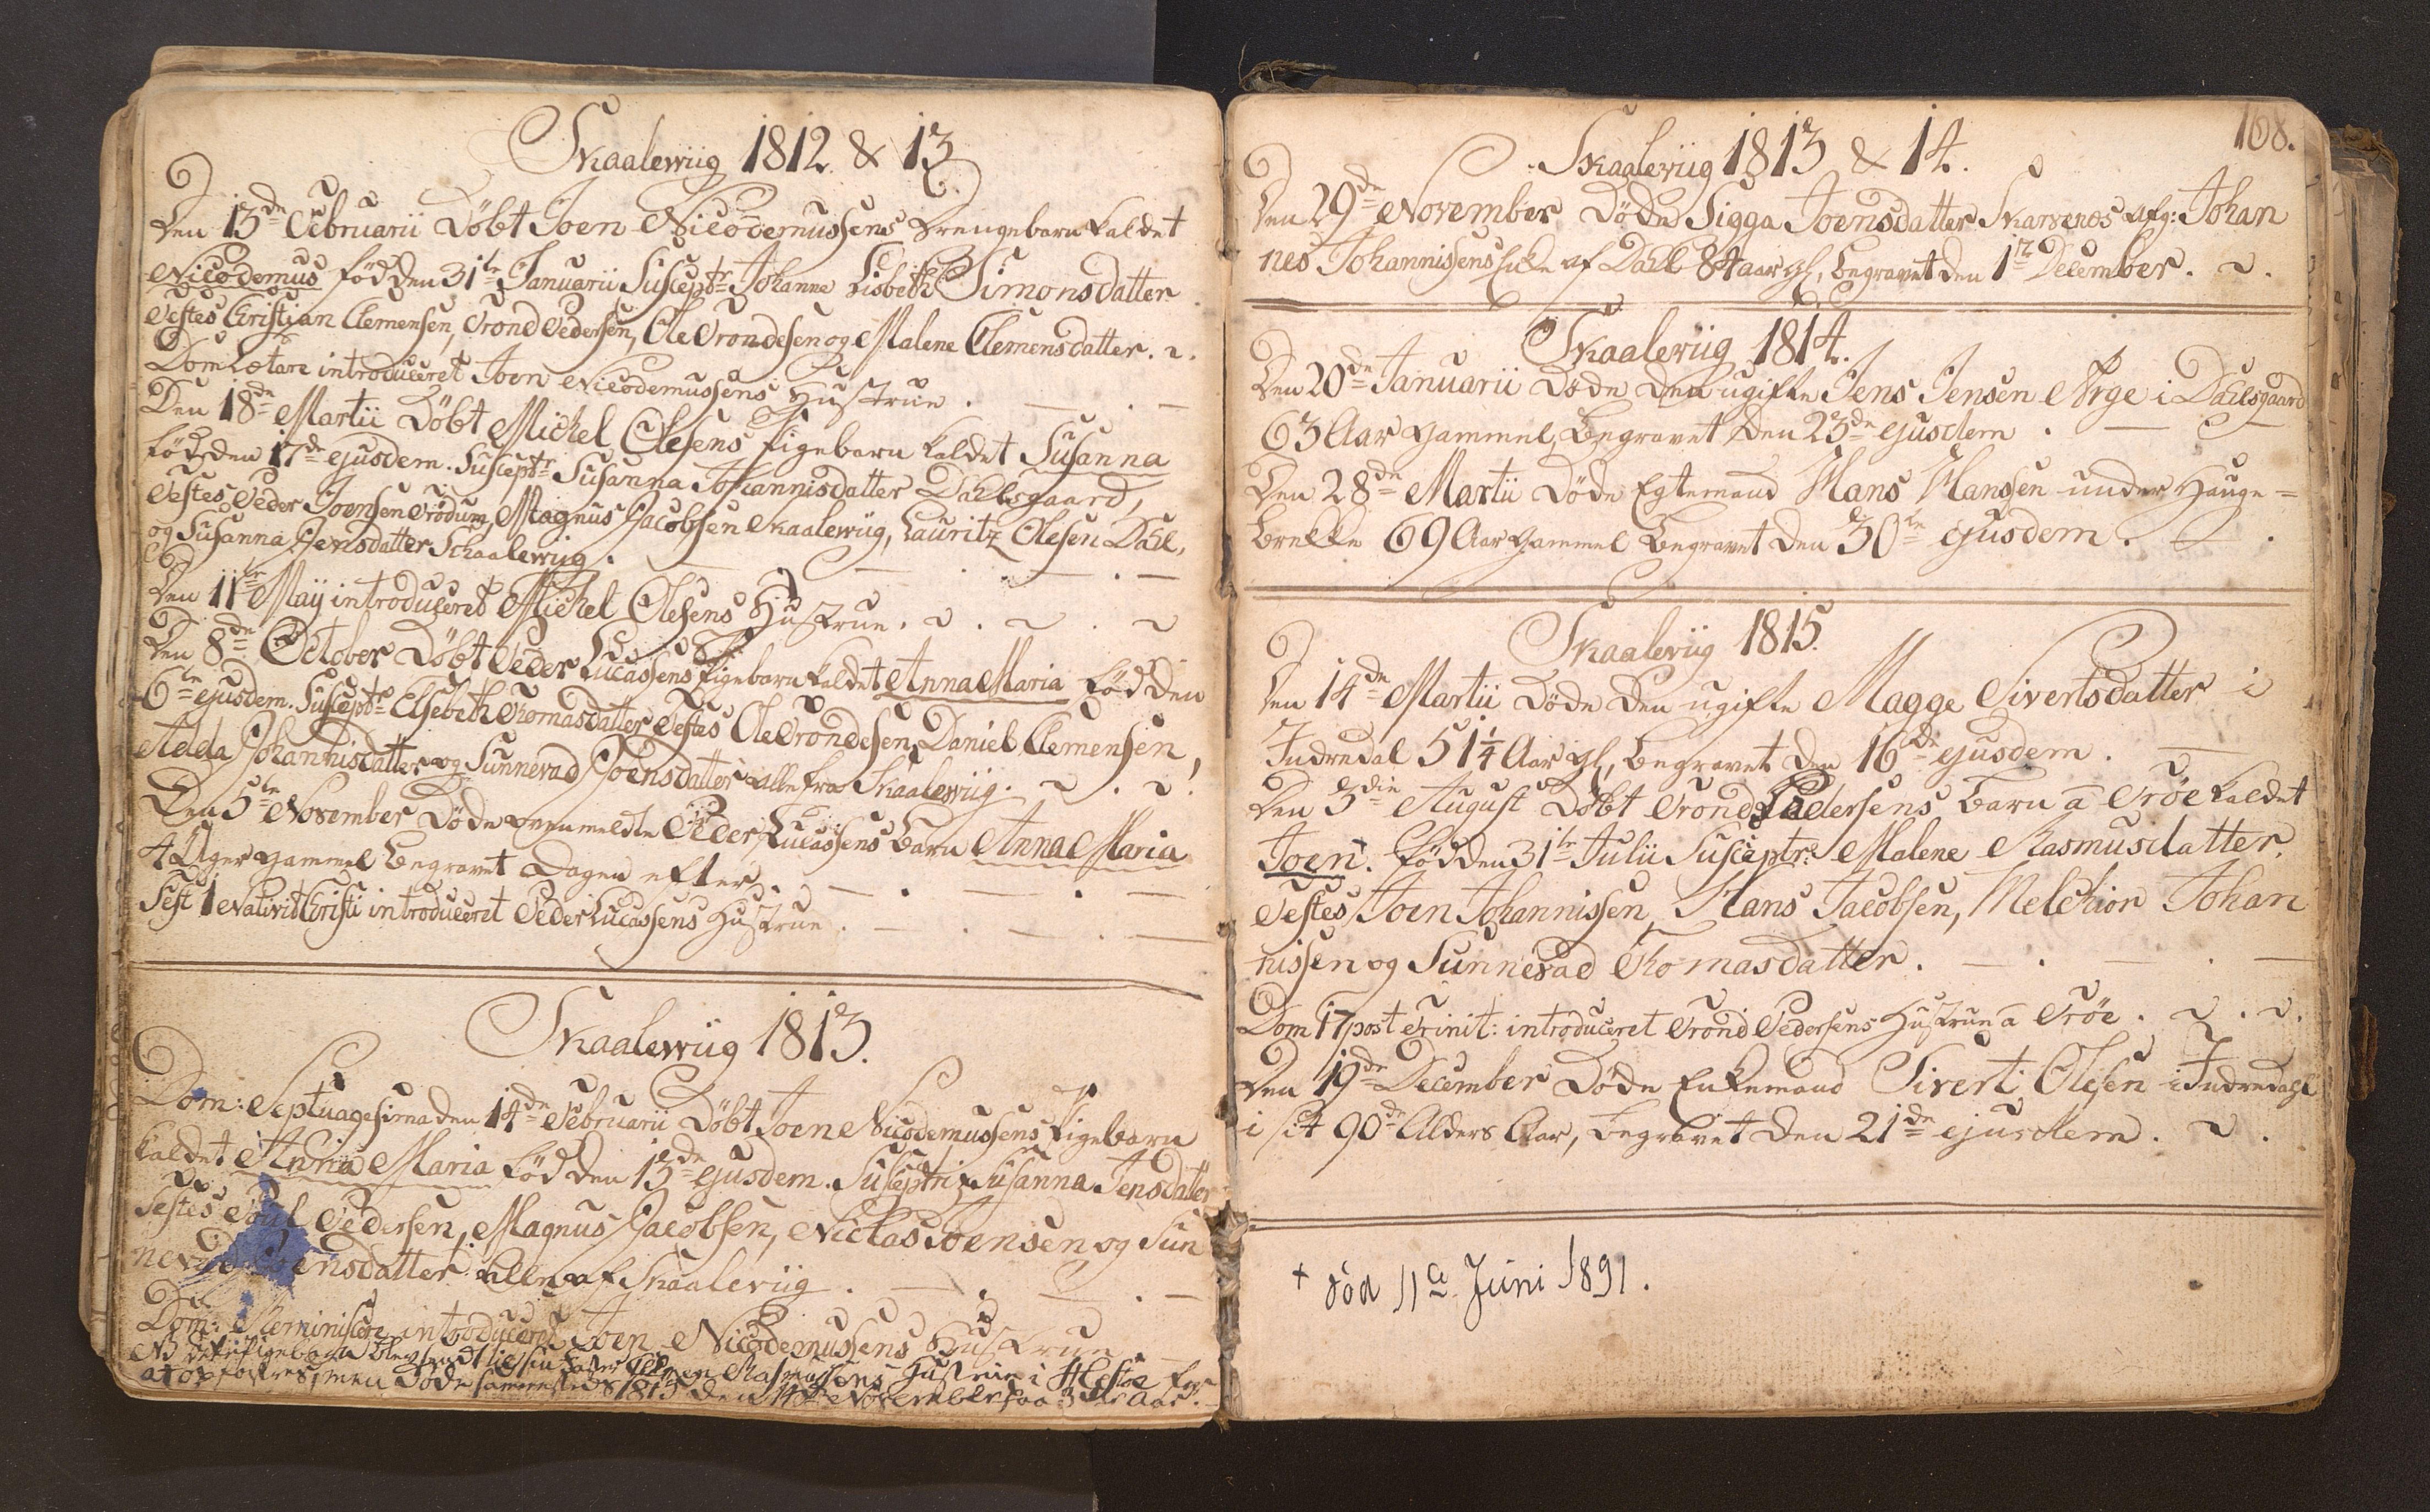 Skaalewiig 1812 & 13
Den 13de Februarii Døbt Joen Nicodemussens Drengebarn kaldet
Nicodemus fød den 31te Januarii Susceptr Johanne Lisbeth Simonsdatter
Testes Christian Clemensen, Trond Pedersen, Ole Trondesen og Malene Clemensdatter.
Dom Lætare introduceret Joen Nicodemussens Hustrue.
Den 18de Martii Døbt Michel Olesens Pigebarn kaldet Susanna
fød den 17de ejusdem. Susceptr Susanna Johannisdatter Dahlsgaard,
Testes Peder Joensen Trödum, Magnus Jacobsen Skaalewiig, Lauritz Olesen Dahl,
og Susanna Jensdatter Schaalewiig.
Den 11te Maÿ introduceret Michel Olesens Hustrue.
Den 8de October Døbt Peder Lucassens Pigebarn kaldet Anna Maria fød den
6te ejusdem. Susceptr Elsebeth Thomasdatter Testes Ole Trondesen, Daniel Clemensen,
Adda Johannisdatter og Sunnevad Joensdatter alle fra Skaalewiig.
Den 5te November Døde ovenmeldte Peder Lucassens Barn Anna Maria
4 Uger gammel begravet Dagen efter.
Fest 1 Nativit Christi introduceret Peder Lucassens Hustrue.
Skaalewiig 1813.
Dom: Septuagesima den 14de Februarii Døbt Joen Nicodemussens Pigebarn
kaldet Anna Maria fød den 13de ejusdem. Susceptrix Susanna Jensdatter
Testes Poul Pedersen, Magnus Jacobsen, Niclas Joensen og Sun
nevad Joensdatter alle af Skaaleviig.
Dom: Reminiscere introduceret Joen Nicodemussens Hustrue.
NB dette Pigebarn blev sendt til sin Faster Rasmussens Hustrue i Hestøe for
at opfostres, men Døde sammesteds 1815 den 14de November paa 3die Aar.
168.
Skaaleviig 1813 & 14.
Den 29de November Døde Sigga Joensdatter Skarvenes afg: Johan
nes Johannissens Enke af Dahl 84 aar gl, begravet den 1te December.
Skaaleviig 1814.
Den 20de Januarii Døde den ugifte Jens Jensen Arge i Dahlsgaard
63 Aar gammel, begravet den 23de ejusdem.
Den 28de Martii Døde Egtemand Hans Hansen under Hauge-
brekke 69 Aar gammel begravet den 30te ejusdem.
Skaaleviig 1815.
Den 14de Martii Døde den ugifte Magge Sivertsdatter i
Indredal 51 1/4 Aar gl, begravet den 16de ejusdem.
Den 3die August Døbt Trond Pedersens barn a Trøe kaldet
Joen. Fød den 31te Julii Susceptr: Malene Rasmusdatter.
Testes Joen Johannissen, Hans Jacobsen, Melchior Johan
nissen og Sunnevad Thomasdatter.
Dom 17 post Trinit: introduceret Trond Pedersens Hustrue a Trøe.
Den 19de December Døde Enkemand Sivert Olesen i Indredahl
i sit 90de Alders Aar, begravet den 21de ejusdem.
+ død 11te Juni 1891.